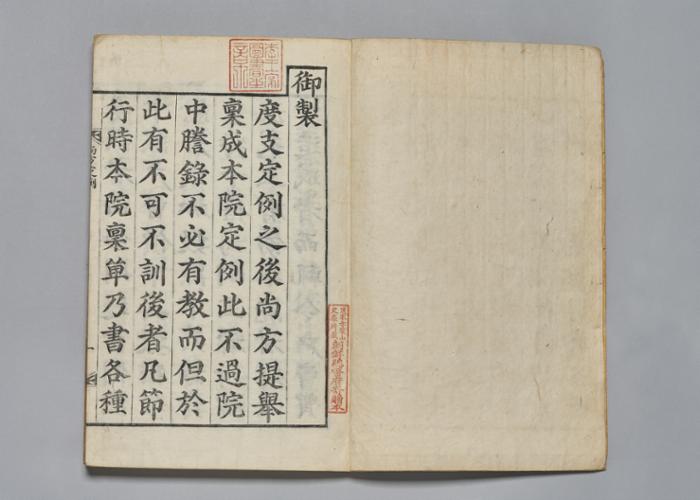 御製
度支定例之後尚方提舉
稟成本院定例此不過院
中謄錄不必有教而但於
此有不可不訓後者凡節
行時本院稟單乃書各種
尚方定例